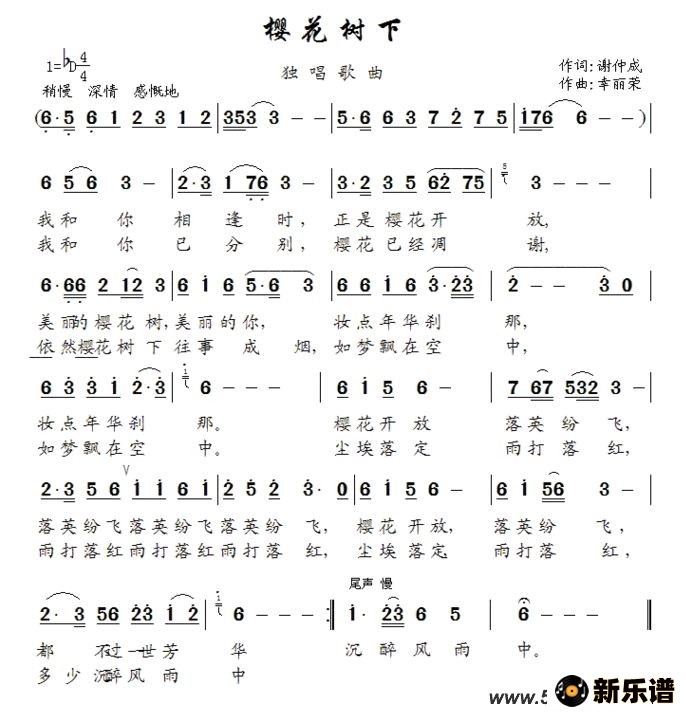 樱花树下
独唱歌曲
1=♭D 4/4
作词:谢仲成
作曲:幸丽荣
稍慢 深情 感慨地
(6·5 6 1 2 3 1 2 | 353 3 - - | 5·6 6 3 7 2 7 5 | 176 6 - - ) |
6 5 6 3 - | 2·3 1 76 3 - | 3·2 3 5 62 75 | 5 3 - - - |
我和你相逢时,正是樱花开放,
我和你已分别,樱花已经凋谢,
6·66 2 12 3 | 6 1 6 5·6 3 | 6 3 1 6 3·23 | 2 - - 3 0 |
美丽的樱花树,美丽的你,妆点年华刹那,
依然樱花树下往事成烟,如梦飘在空中,
6 3 3 1 2·3 | 1 6 - - - | 6 1 5 6 - | 7 67 532 3 - |
妆点年华刹那。樱花开放落英纷飞,
如梦飘在空中。尘埃落定雨打落红,
2·3 5 6 V 1 1 6 6 | 2 5 2 3·0 | 6 1 5 6 - | 6 1 56 3 - |
落英纷飞落英纷飞落英纷飞,樱花开放,落英纷飞,
雨打落红雨打落红雨打落红,尘埃落定,雨打落红,
尾声 慢
2·3 56 23 1 2 | 1 6 - - :| 1·23 6 5 | 6 - - - |
都不过一世芳华沉醉风雨中。
多少沉醉风雨中
www.5
新乐谱